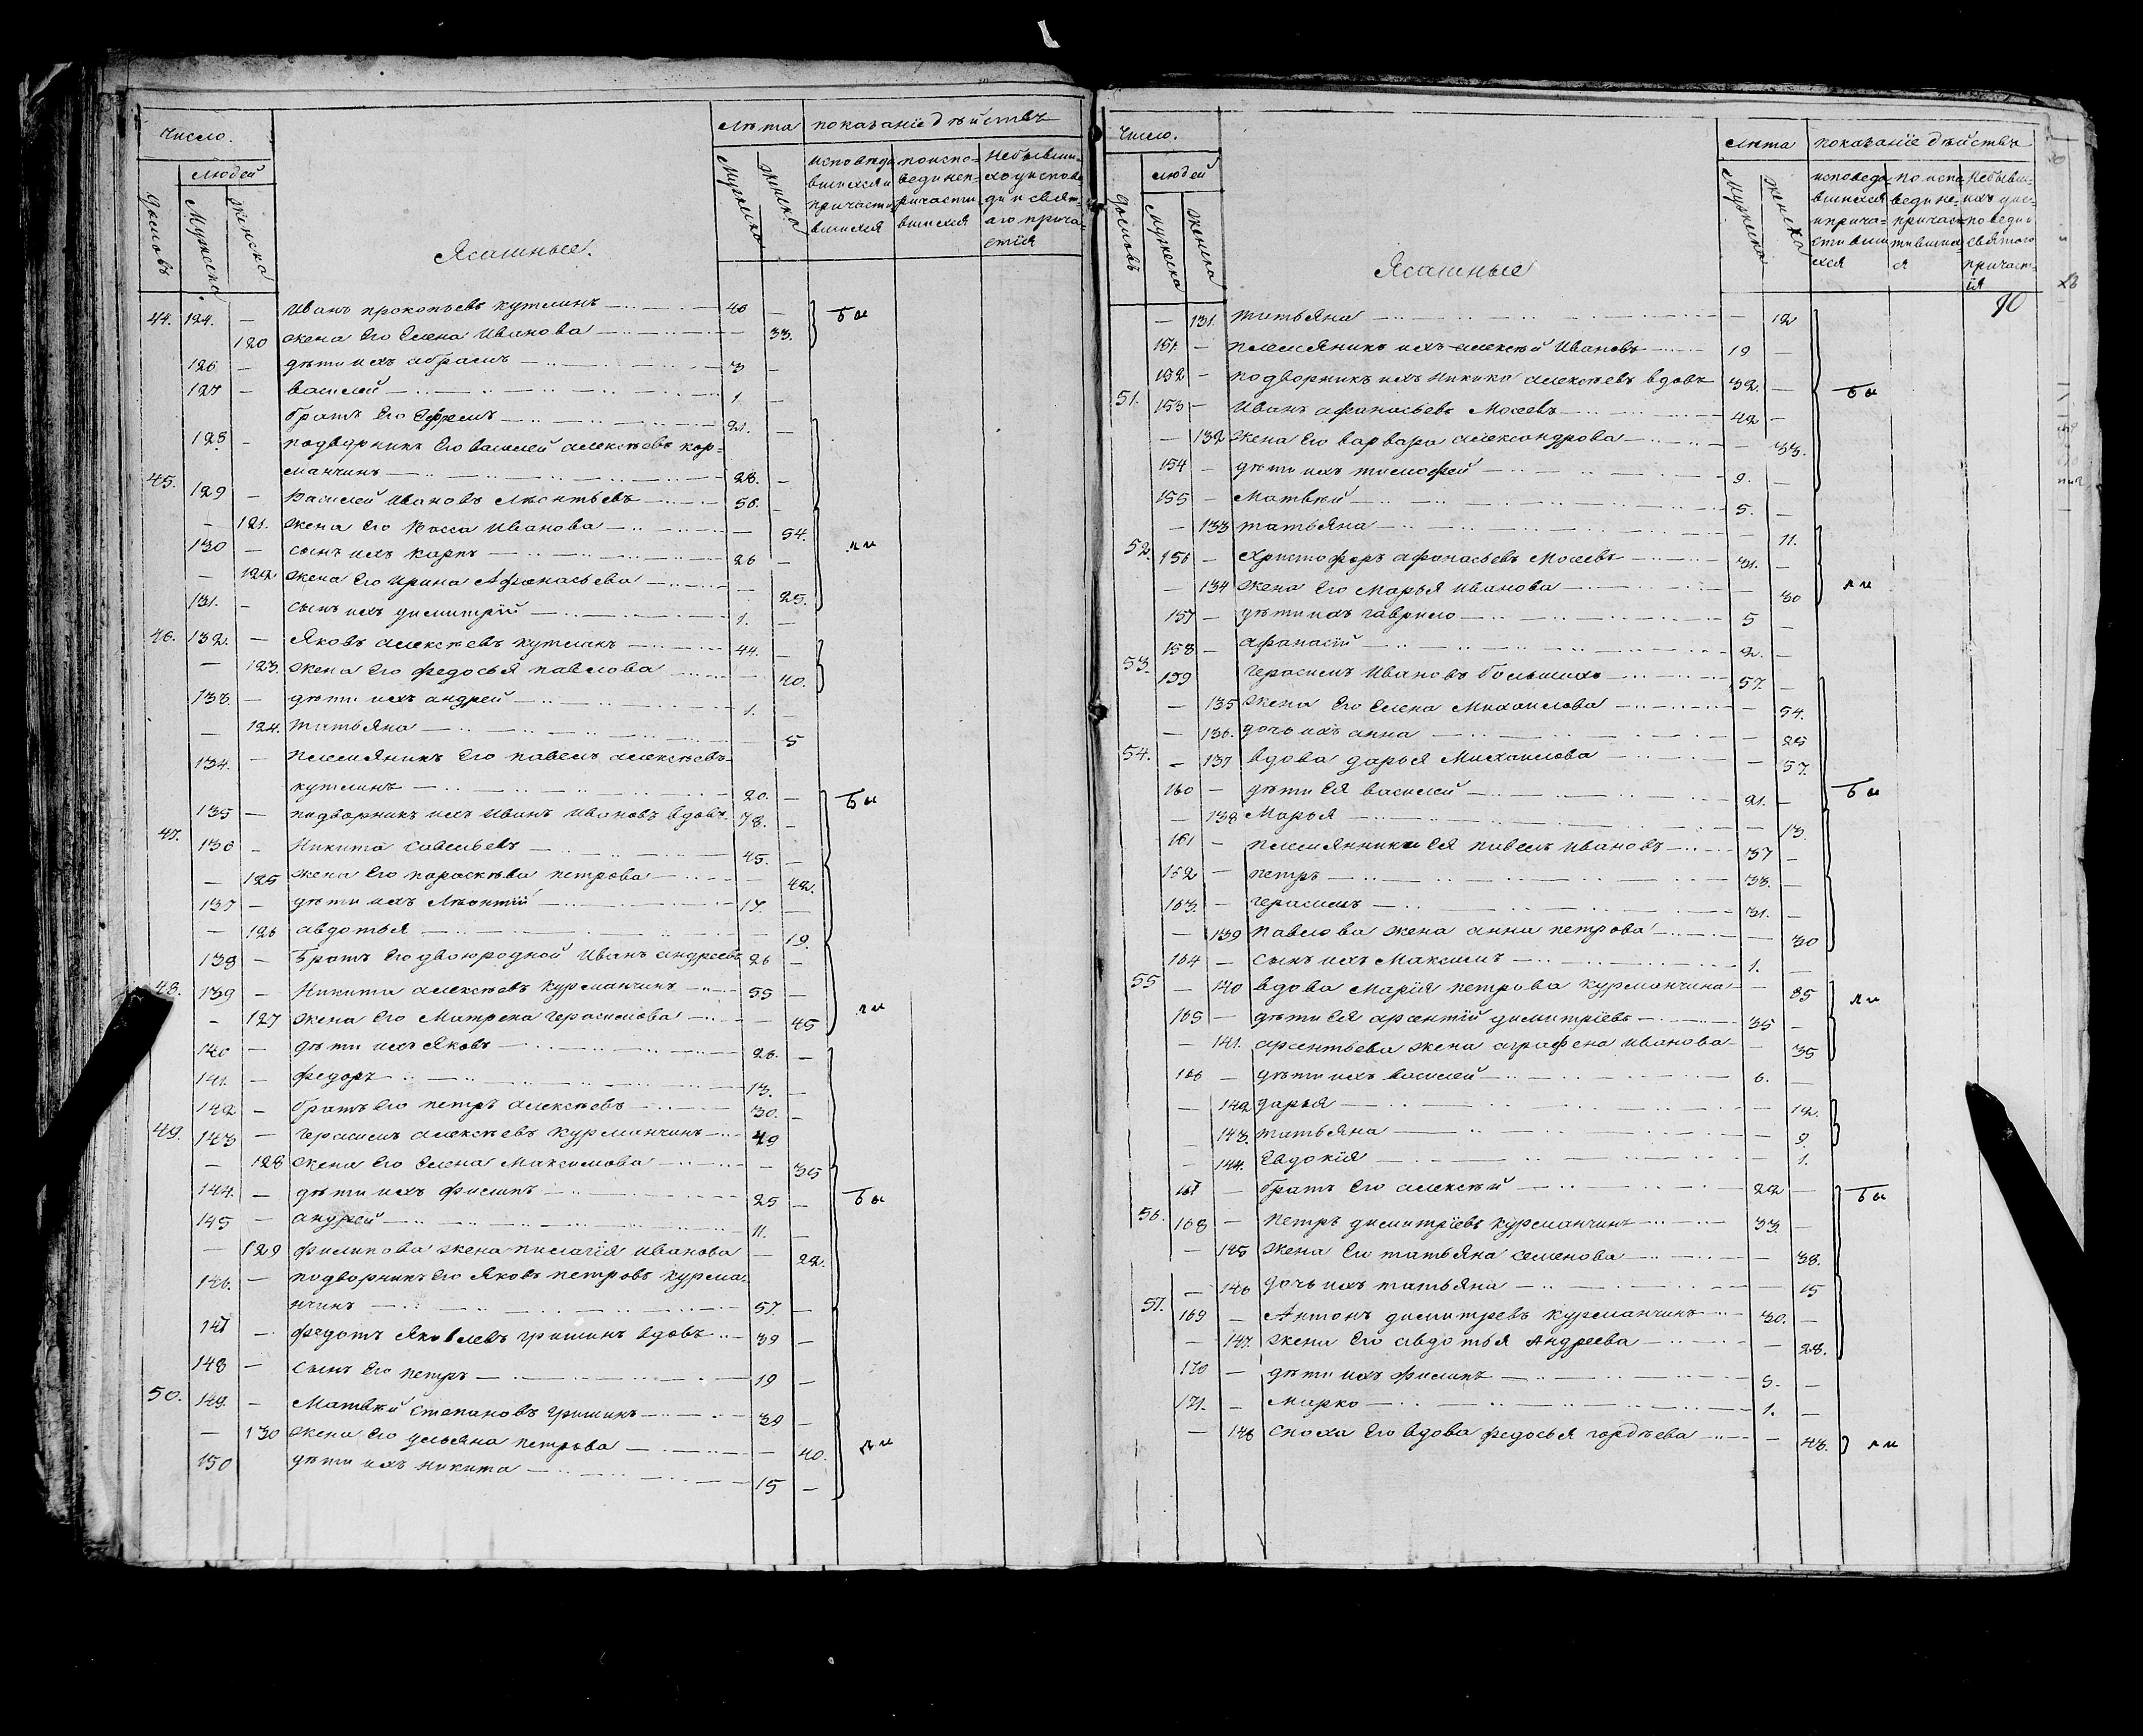 Число.
Лѣта показанїе дѣйствъ
людей
домовъ
Мужеска
женска
Ясашные.
Мужеска
женска
исповѣдавшихся и причастившихся
по исповеди неприч­астившихся
Небывшихъ у исповеди и святаго причастїя
44. 124. — Иванъ прокопьевъ кутминъ — 40 —
— 120 жена его Елена Иванова — — 33. бы
126 — дѣти ихъ абрамъ — 3 —
127 — василей — 1. —
братъ его Ефремъ — 21. —
128. — подворникъ его василей алексѣевъ кур=
манчинъ — 28. —
45. 129 — Василей Ивановъ Лѣонтьевъ — 56. —
— 121. жена его Васса Иванова — — 54.
130 — сынъ ихъ карпъ — 26 — ли
— 122. жена его Ирина Афонасьева — — 25.
131. — сынъ ихъ димитрїй — 1. —
46. 132. — Яковъ алексѣевъ кутминъ — 44. —
— 123. жена его федосья павлова — — 40.
133. — дѣти ихъ андрей — 1. —
— 124. татьяна — — 5
134. — племяникъ его павелъ алексѣевъ
кутминъ — 20. —
135 — подворникъ ихъ Иванъ Ивановъ вдовъ 78. — бы
47. 136 — Никита савельевъ — 45. —
— 125 жена его параскѣва петрова — — 42.
137 — дѣти ихъ Лѣонтїй — 17. —
— 126 авдотья — — 19.
138 — Братъ его двоюродной Иванъ андреевъ 26 —
48. 139 — Никита алексѣевъ курманчинъ — 55 —
— 127 жена его Матрена герасимова — — 45 ли
140 — дѣти ихъ Яковъ — 26. —
141. — федоръ — 13. —
142 — братъ его петръ алексѣевъ — 30. —
49. 143 — герасимъ алексѣевъ курманчинъ — 49
— 128 жена его Елена Максимова — — 35
144. — дѣти ихъ филипъ — 25 — бы
145 — андрей — 11. —
— 129 филипова жена пилагїя Иванова — 22.
146. — подворникъ его Яковъ петровъ курма=
нчинъ — 57. —
147 — федотъ Яковлевъ гришинъ вдовъ — 39 —
148 — сынъ его петръ — 19 —
50. 149. — Матвѣй степановъ гришинъ — 39 —
— 130 жена его ульяна петрова — — 40. ли
150 дѣти ихъ никита — 15 —
Число.
Лѣта показанїе дѣйствъ
людей
домовъ
Мужеска
женска
Ясашные
Мужеска
женска
исповедавшихся и причастившихся
по исповеди непричастившихся
Небывшихъ у исповеди и святаго причастїя
90
— 131. татьяна — — 12
151. — племяникъ ихъ алексѣй Ивановъ — 19 —
152 — подворникъ ихъ никита алексѣевъ вдовъ 32. —
51. 153 — Иванъ афонасьевъ Мосевъ — 42 — бы
— 132 жена его варвара александрова — — 33.
154 — дѣти ихъ тимофей — 9. —
155 — Матвѣй — 5. —
— 133 татьяна — — 11.
52. 156 — Христофоръ афонасьевъ Мосевъ — 31. —
— 134 жена его Марья Иванова — — 30 ли
157 — дѣти ихъ гаврило — 5 —
158 — афанасїй — 2. —
53. 159 герасимъ Ивановъ большихъ — 57. —
— 135 жена его Елена Михаилова — — 54.
— 136. дочь ихъ анна — — 25
54. — 137 вдова дарья Михаилова — — 57.
160 — дѣти Ея василей — 21. — бы
— 138 Марья — — 13.
161 — племянники Ея павелъ Ивановъ — 37 —
162 — петръ — 33. —
163. — герасимъ — 31. —
— 139 павлова жена анна петрова — — 30
164 — сынъ ихъ Максимъ — 1. —
55 — 140 вдова Марїя петрова курманчина — 85 ли
165 — дѣти Ея арсентїй димитрїевъ — 35 —
— 141. арсентьева жена аграфена Иванова — 35
166 — дѣти ихъ василей — 6. —
— 142 дарья — — 12.
— 143. татьяна — — 9.
— 144. Евдокїя — — 1.
167 — братъ его алексѣй — 22 — бы
56. 168 — петръ димитрїевъ курманчинъ — 33. —
— 145 жена его татьяна семенова — — 38.
— 146 дочь ихъ татьяна — — 15
57. 169 — Антонъ димитревъ курманчинъ — 30. —
— 147. жена его авдотья Андреева — — 28.
170 — дѣти ихъ филипъ — 3. —
171. — Марко — 1. —
— 148 сноха его вдова федосья гордѣева — — 48. ли